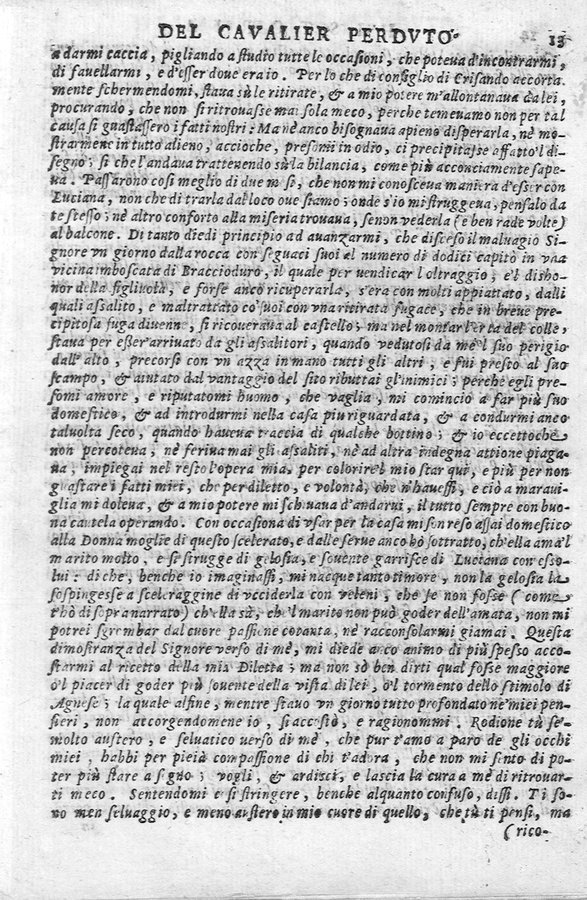 DEL CAVALIER PERDVTO. 13
a darmi caccia, pigliando a studio tutte le occasioni, che poteua d'incontrarmi,
di fauellarmi, e d'esser doue era io. Per lo che di consiglio di Crisando accorta
mente schermendomi, staua sù le ritirate, & a mio potere m'allontanaua da lei,
procurando, che non si ritrouasse mai sola meco, perche temeuamo non per tal
causa si guastassero i fatti nostri: Ma nè anco bisognaua apieno disperarla, nè mo-
strarmene in tutto alieno, accioche, presomi in odio, ci precipitasse affatto'l di-
segno; sì che l'andaua trattenendo sù la bilancia, come più acconciamente sape-
ua. Passarono così meglio di due mesi, che non mi conosceua maniera d'esser con
Luciana, non che di trarla dal loco oue stiamo; onde s'io mi struggeua, pensalo da
te stesso; nè altro conforto alla miseria trouaua, se non vederla (e ben rade volte)
al balcone. Di tanto diedi principio ad auanzarmi, che disceso il maluagio Si-
gnore vn giorno dalla rocca con seguaci suoi al numero di dodici capitò in vna
vicina imboscata di Braccioduro, il quale per uendicar l'oltraggio, e'l disho-
nor della figliuola, e forse anco ricuperarla, s'era con molti appiattato, dalli
quali assalito, e maltrattato co' suoi con vna ritirata fugace, che in breue pre-
cipitosa fuga diuenne, si ricoueraua al castello; ma nel montar l'erta del colle,
staua per esser arriuato da gli assalitori, quando vedutosi da mè l suo perigio
dall'alto, precorsi con vn azza in mano tutti gli altri, e fui presto al suo
scampo, & aiutato dal vantaggio del sito ributtai gl'inimici; perche egli pre-
somi amore, e riputatomi huomo, che vaglia, mi cominciò a far più suo
domestico, & ad introdurmi nella casa piu riguardata, & a condurmi anco
taluolta seco, quando haueua traccia di qualche bottino; & io eccettoche
non percoteua, nè feriua mai gli assaliti, nè ad altra indegna attione piega-
ua, impiegai nel resto l'opera mia, per colorire'l mio star quì, e più per non
guastare i fatti miei, che per diletto, e volontà, che n'hauessi, e ciò a maraui-
glia mi doleua, & a mio potere mi schiuaua d'andarui, il tutto sempre con buo-
na cautela operando. Con occasione di vsar per la casa mi son reso assai domestico
alla Donna moglie di questo scelerato, e dalle serue anco hò sottratto, ch'ella ama'l
marito molto, e se strugge di gelosia, e souente garrisce di Luciana con esso-
lui: di che, benche io imaginassi, mi nacque tanto timore, non la gelosia la
sospingesse a sceleraggine di vcciderla con veleni, che se non fosse (come
t'hò di sopra narrato) ch'ella sà, che'l marito non può goder dell'amata, non mi
potrei sgrembar dal cuore passione cotanta, nè racconsolarmi giamai. Questa
dimostranza del Signore verso di mè, mi diede anco animo di più spesso acco-
starmi al ricetto della mia Diletta; ma non sò ben dirti qual fosse maggiore
ò'l piacer di goder più souente della vista di lei, ò'l tormento dello stimolo di
Agnese; la quale alfine, mentre stauo vn giorno tutto profondato ne'miei pen-
sieri, non accorgendomene io, si accostò, e ragionommi. Rodione tù se'
molto austero, e seluatico uerso di mè, che pur t'amo a paro de gli occhi
miei, habbi per pietà compassione di chi t'adora, che non mi sento di po-
ter più stare a segno; vogli, & ardisci, e lascia la cura a mè di ritrouar-
ti meco. Sentendomi così stringere, benche alquanto confuso, dissi. Ti so-
no men seluaggio, e meno austero in mio cuore di quello, che tù ti pensi, ma
(rico-